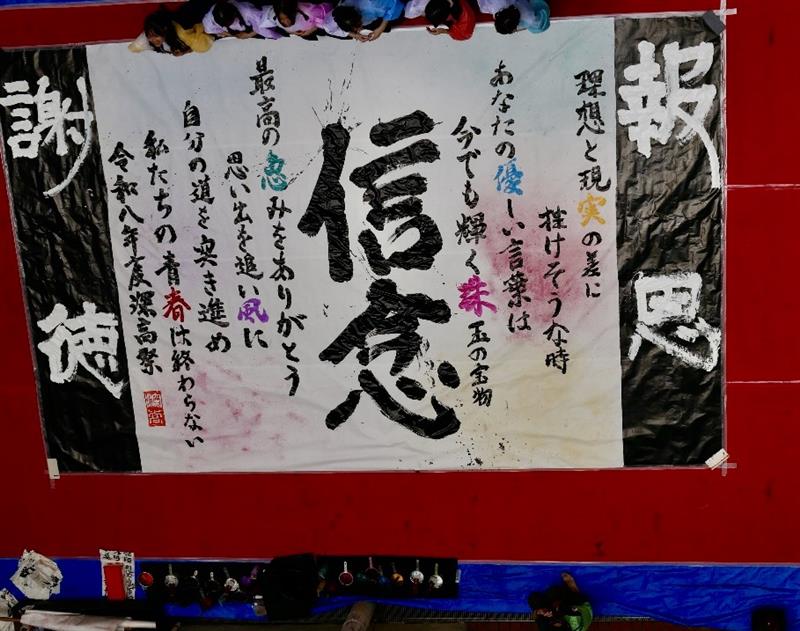 報恩
理想と現実の差に
挫けそうな時
あなたの優しい言葉は
今でも輝く珠玉の宝物
信念
最高の恵みをありがとう
思い出を追い風に
自分の道を突き進め
私たちの青春は終わらない
令和八年度深高祭
謝徳